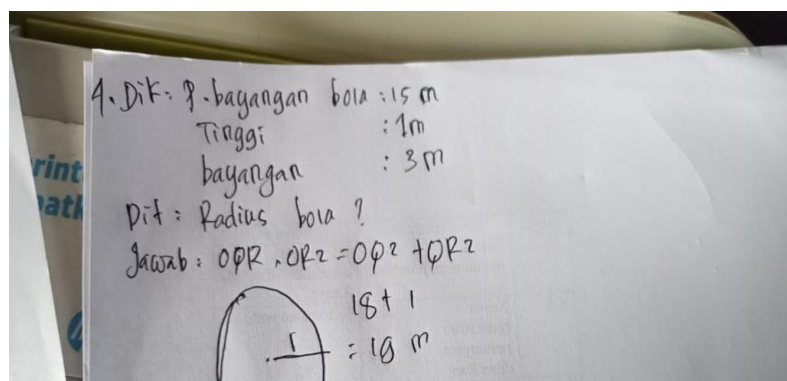 4. Dik: P. bayangan bola : 15 m
Tinggi : 1m
bayangan : 3 m
Dit : Radius bola ?
Jawab : OQR, OR2 = OQ2 + QR2
18 + 1
= 19 m
r
rint